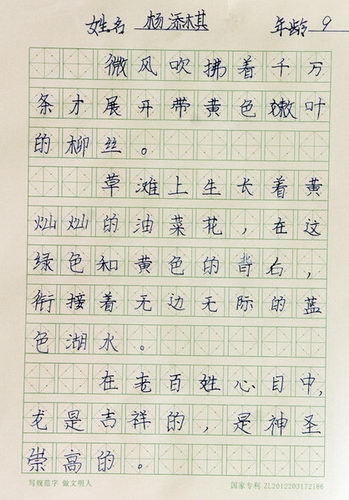 姓名 杨添棋 年龄 9
微风吹拂着千万
条才展开带黄色嫩叶
的柳丝。
草滩上生长着黄
灿灿的油菜花，在这
绿色和黄色的背右，
衔接着无边无际的蓝
色湖水。
在老百姓心目中，
龙是吉祥的，是神圣
崇高的。
写规范字 做文明人 国家专利 ZL2012203172186